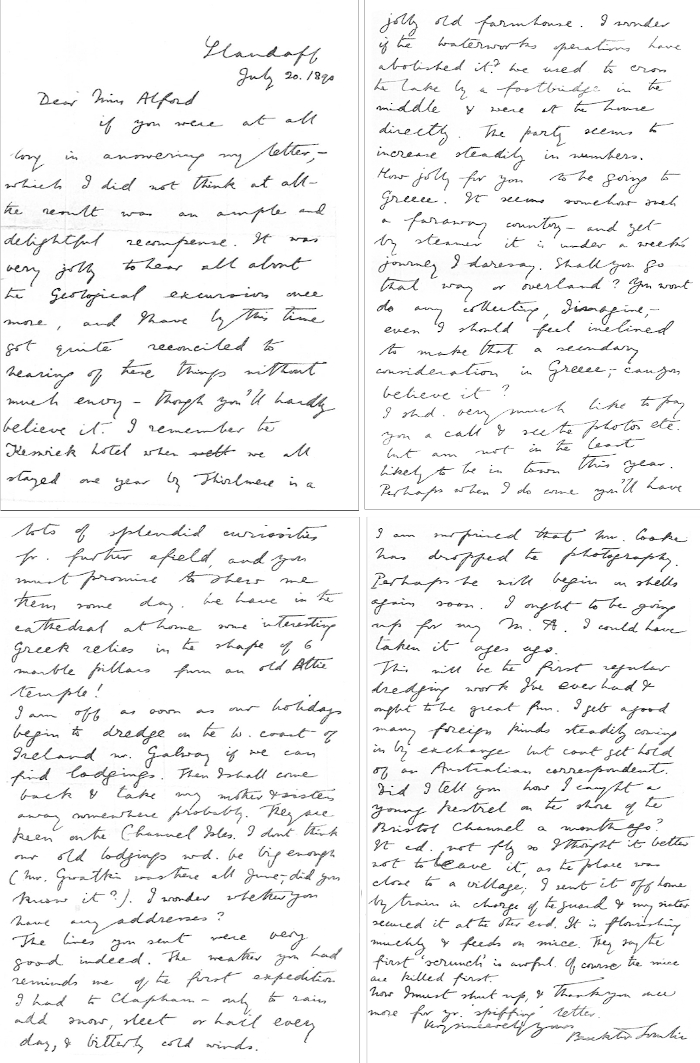 Llandaff
July 20. 1890
Dear Miss Alford
if you were at all
long in answering my letter,-
which I did not think at all-
the result was an ample and
delightful recompense. It was
very jolly to hear all about
the Geological excursion once
more, and I have by this time
got quite reconciled to
hearing of these things without
much envy - though you'll hardly
believe it. I remember the
Keswick hotel when we all
stayed one year by Thirlmere in a
jolly old farmhouse. I wonder
if the waterworks operations have
abolished it? We used to cross
the lake by a footbridge in the
middle & were at the house
directly. The party seems to
increase steadily in numbers.
How jolly for you to be going to
Greece. It seems somehow such
a faraway country - and yet
by steamer it is under a week's
journey I daresay. Shall you go
that way or overland? You wont
do any collecting, I imagine,-
even I should feel inclined
to make that a secondary
consideration in Greece,- can you
believe it?
I shd. very much like to pay
you a call & see the photos etc.
but am not in the least
likely to be in town this year.
Perhaps when I do come you'll have
lots of splendid curiosities
fr. further afield, and you
must promise to show me
them some day. We have in the
cathedral at home some interesting
Greek relics in the shape of 6
marble pillars from an old Attic
temple!
I am off as soon as our holidays
begin to dredge on the W. coast of
Ireland nr. Galway if we can
find lodgings. Then I shall come
back & take my mother & sisters
away somewhere probably. They are
keen on the Channel Isles. I dont think
our old lodgings wd. be big enough
(Mr. Gwatkin was here all June,- did you
know it?). I wonder whether you
have any addresses?
The lines you sent were very
good indeed. The weather you had
reminds me of the first expedition
I had to Clapham - only to rain
add snow, sleet or hail every
day, & bitterly cold winds.
I am surprised that Mr. Cooke
has dropped the photography.
Perhaps he will begin on shells
again soon. I ought to be going
up for my M.A. I could have
taken it ages ago.
This will be the first regular
dredging work I've ever had &
ought to be great fun. I get a good
many foreign kinds steadily coming
in by exchange but cant get hold
of an Australian correspondent.
Did I tell you how I caught a
young Kestrel on the shore of the
Bristol Channel a month ago?
It cd. not fly so I thought it better
not to leave it, as the place was
close to a village; I sent it off home
by train in charge of the guard & my sister
secured it at the other end. It is flourishing
muchly & feeds on mice. They say the
first 'scrunch' is awful. Of course the mice
are killed first.
Now I must shut up, & thank you once
more for yr. 'spiffing' letter.
Very sincerely yours
Brockton Tomlin